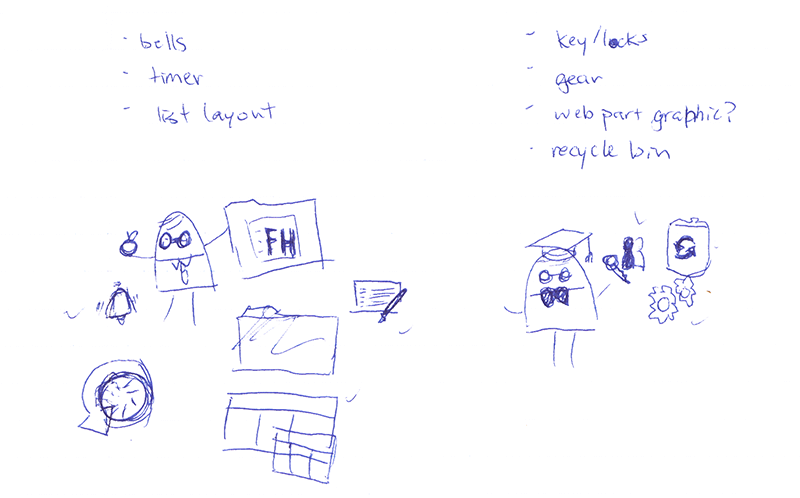 - bells
- timer
- list layout
- key/locks
- gear
- web part graphic?
- recycle bin
FH